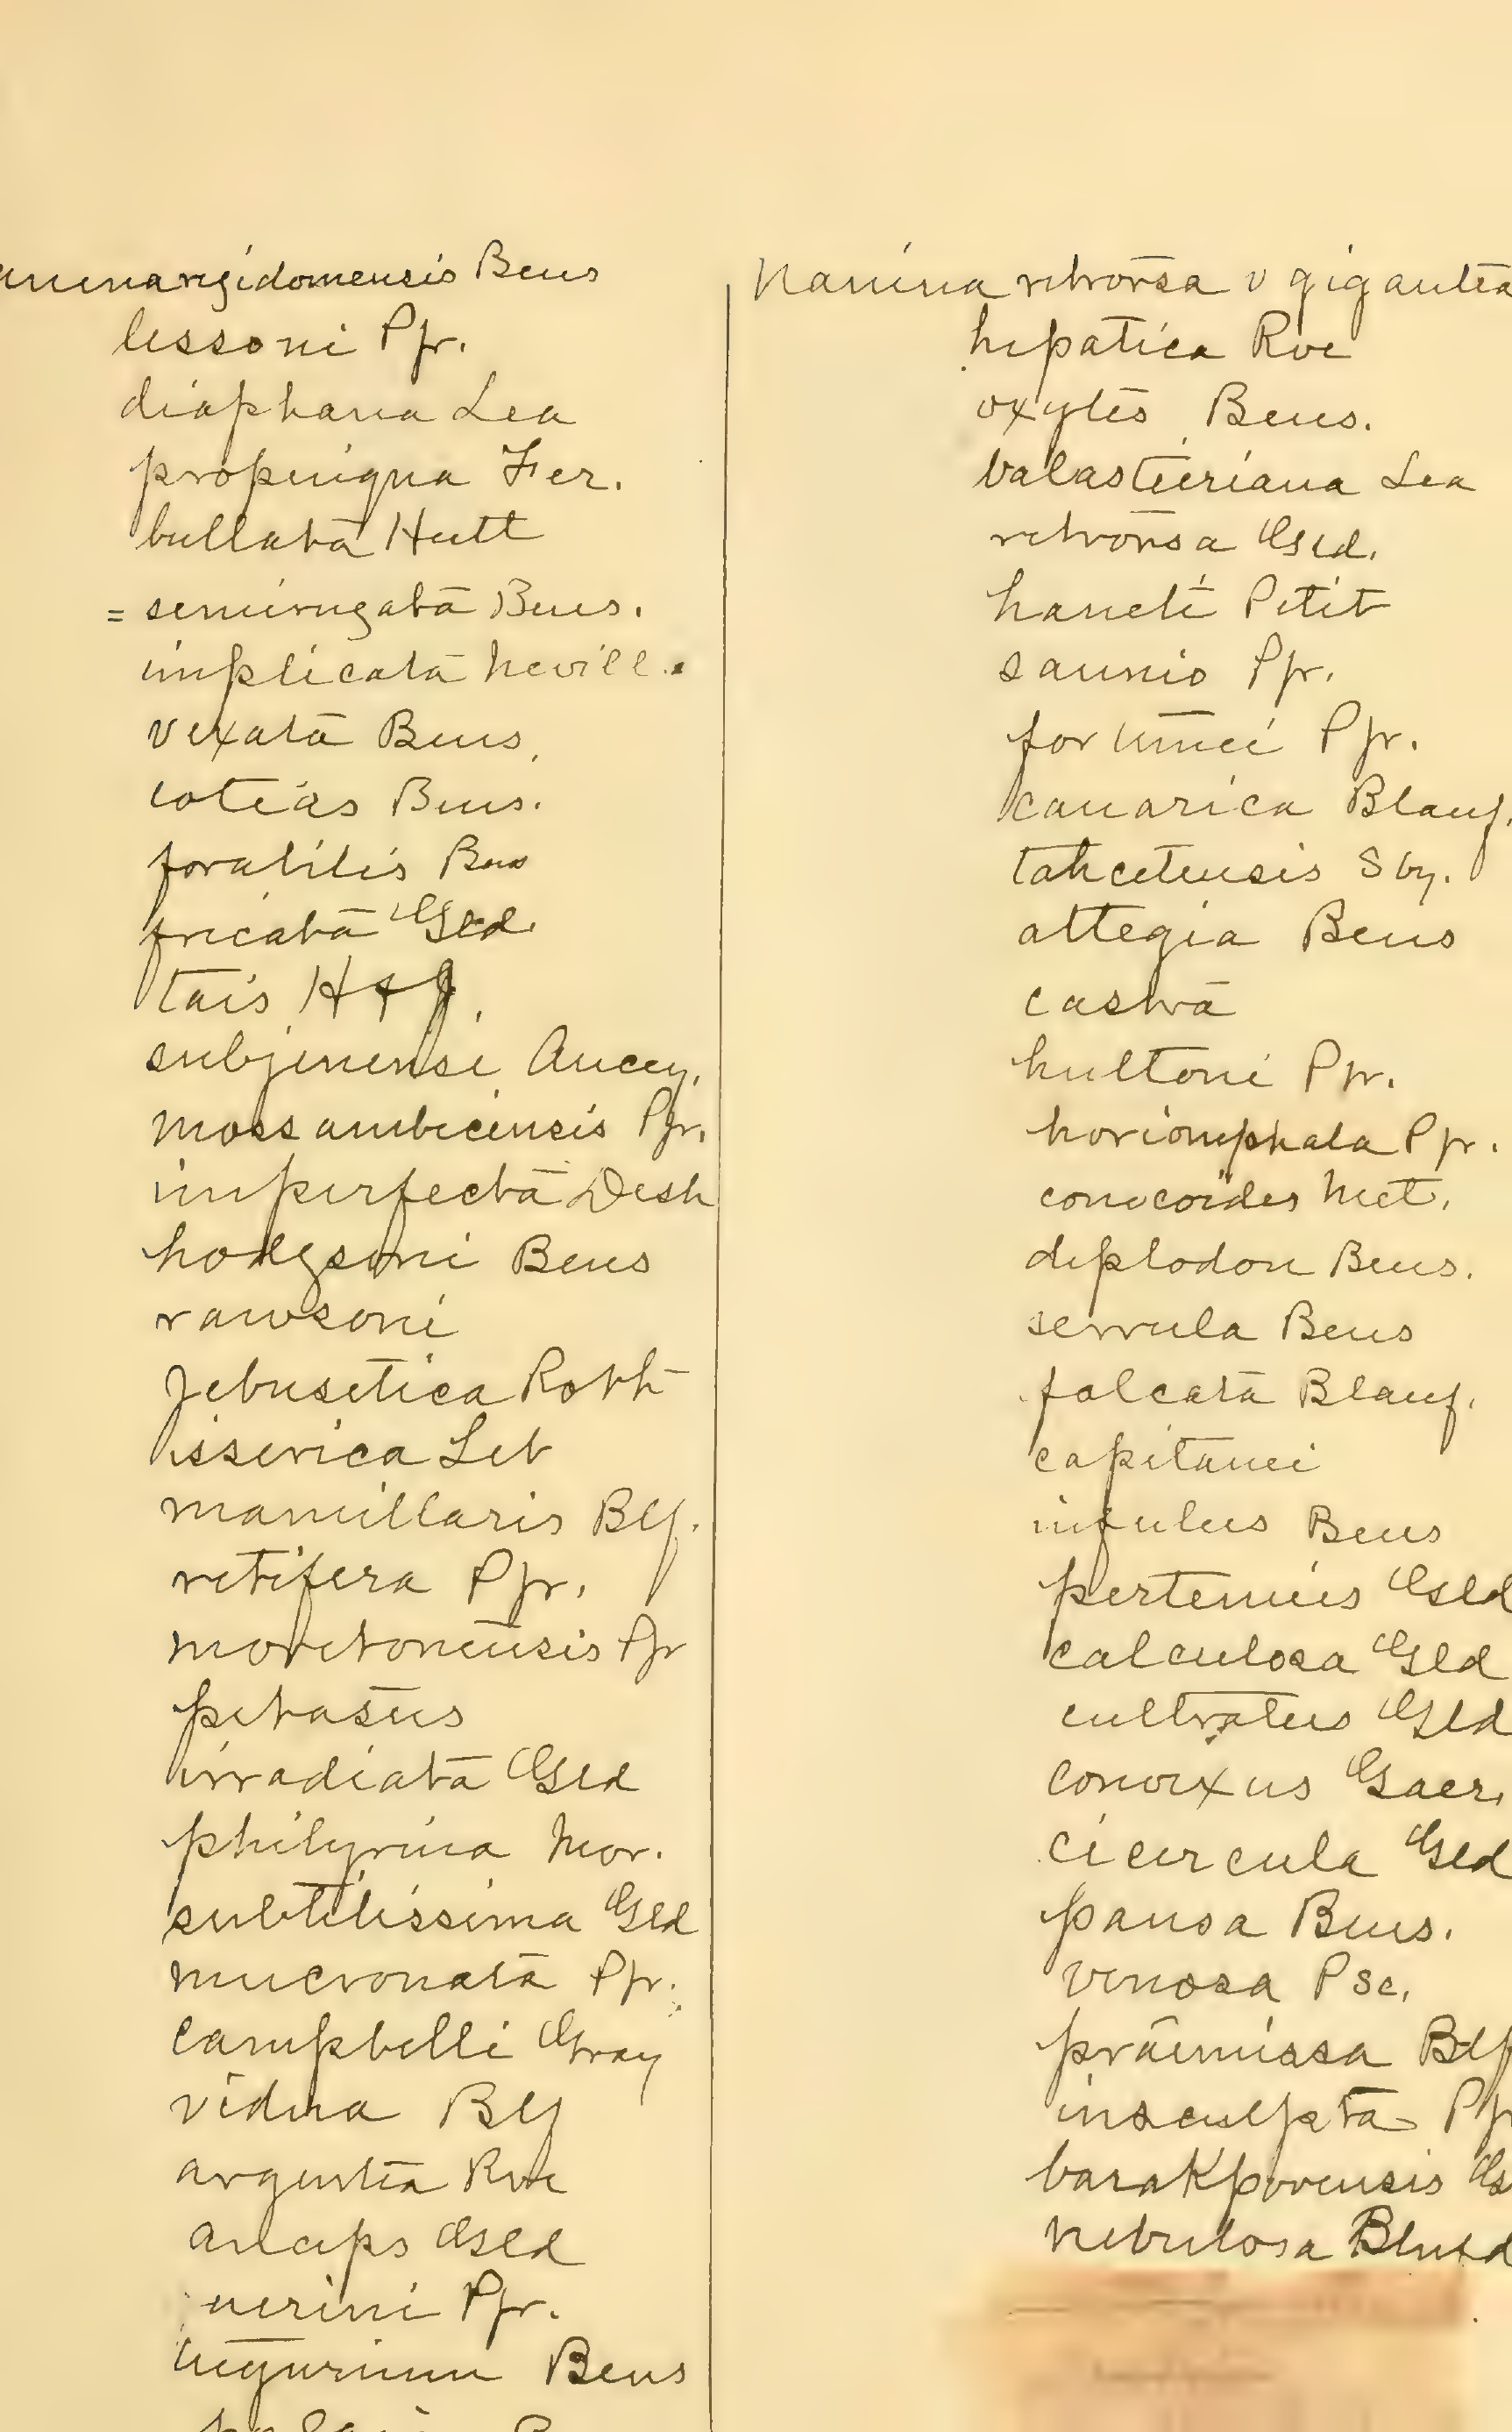 anina rigidomensis Bens
lessoni Pfr.
diaphana Lea
propinqua Fer.
bullata Hutt
= semirugata Bens.
implicata Nevill.
vexata Bens.
cotias Bens.
forabilis Bens
fricata Gld.
tais H & J.
subjenensi Ancey.
mossambicensis Pfr.
imperfecta Desh
hodgsoni Bens
rawsoni
jebusetica Roth
isserica Let
mamillaris Blf.
retifera Pfr.
moretonensis Pfr
petasus
irradiata Gld
philyrina Mor.
subtilissima Gld
mucronata Pfr.
campbelli Gray
vidua Blf
argentea Rve
anceps Gld
nerini Pfr.
tugurium Bens
Nanina retrorsa v gigantea
hepatica Rve
oxytes Bens.
balasteriana Lea
retrorsa Gld.
haneti Petit
saunio Pfr.
fortunei Pfr.
canarica Blanf.
taheitensis Sby.
attegia Bens
castra
huttoni Pfr.
horiomphala Pfr.
conocoides Met.
diplodon Bens.
serrula Bens
falcata Blanf.
capitanei
infulus Bens
pertenuis Gld
calculosa Gld
cultratus Gld
convexus Gaer.
cicercula Gld
pausa Bens.
venosa Pse.
praemissa Blf
insculpta Pfr
barakporensis
nebulosa Blnfd